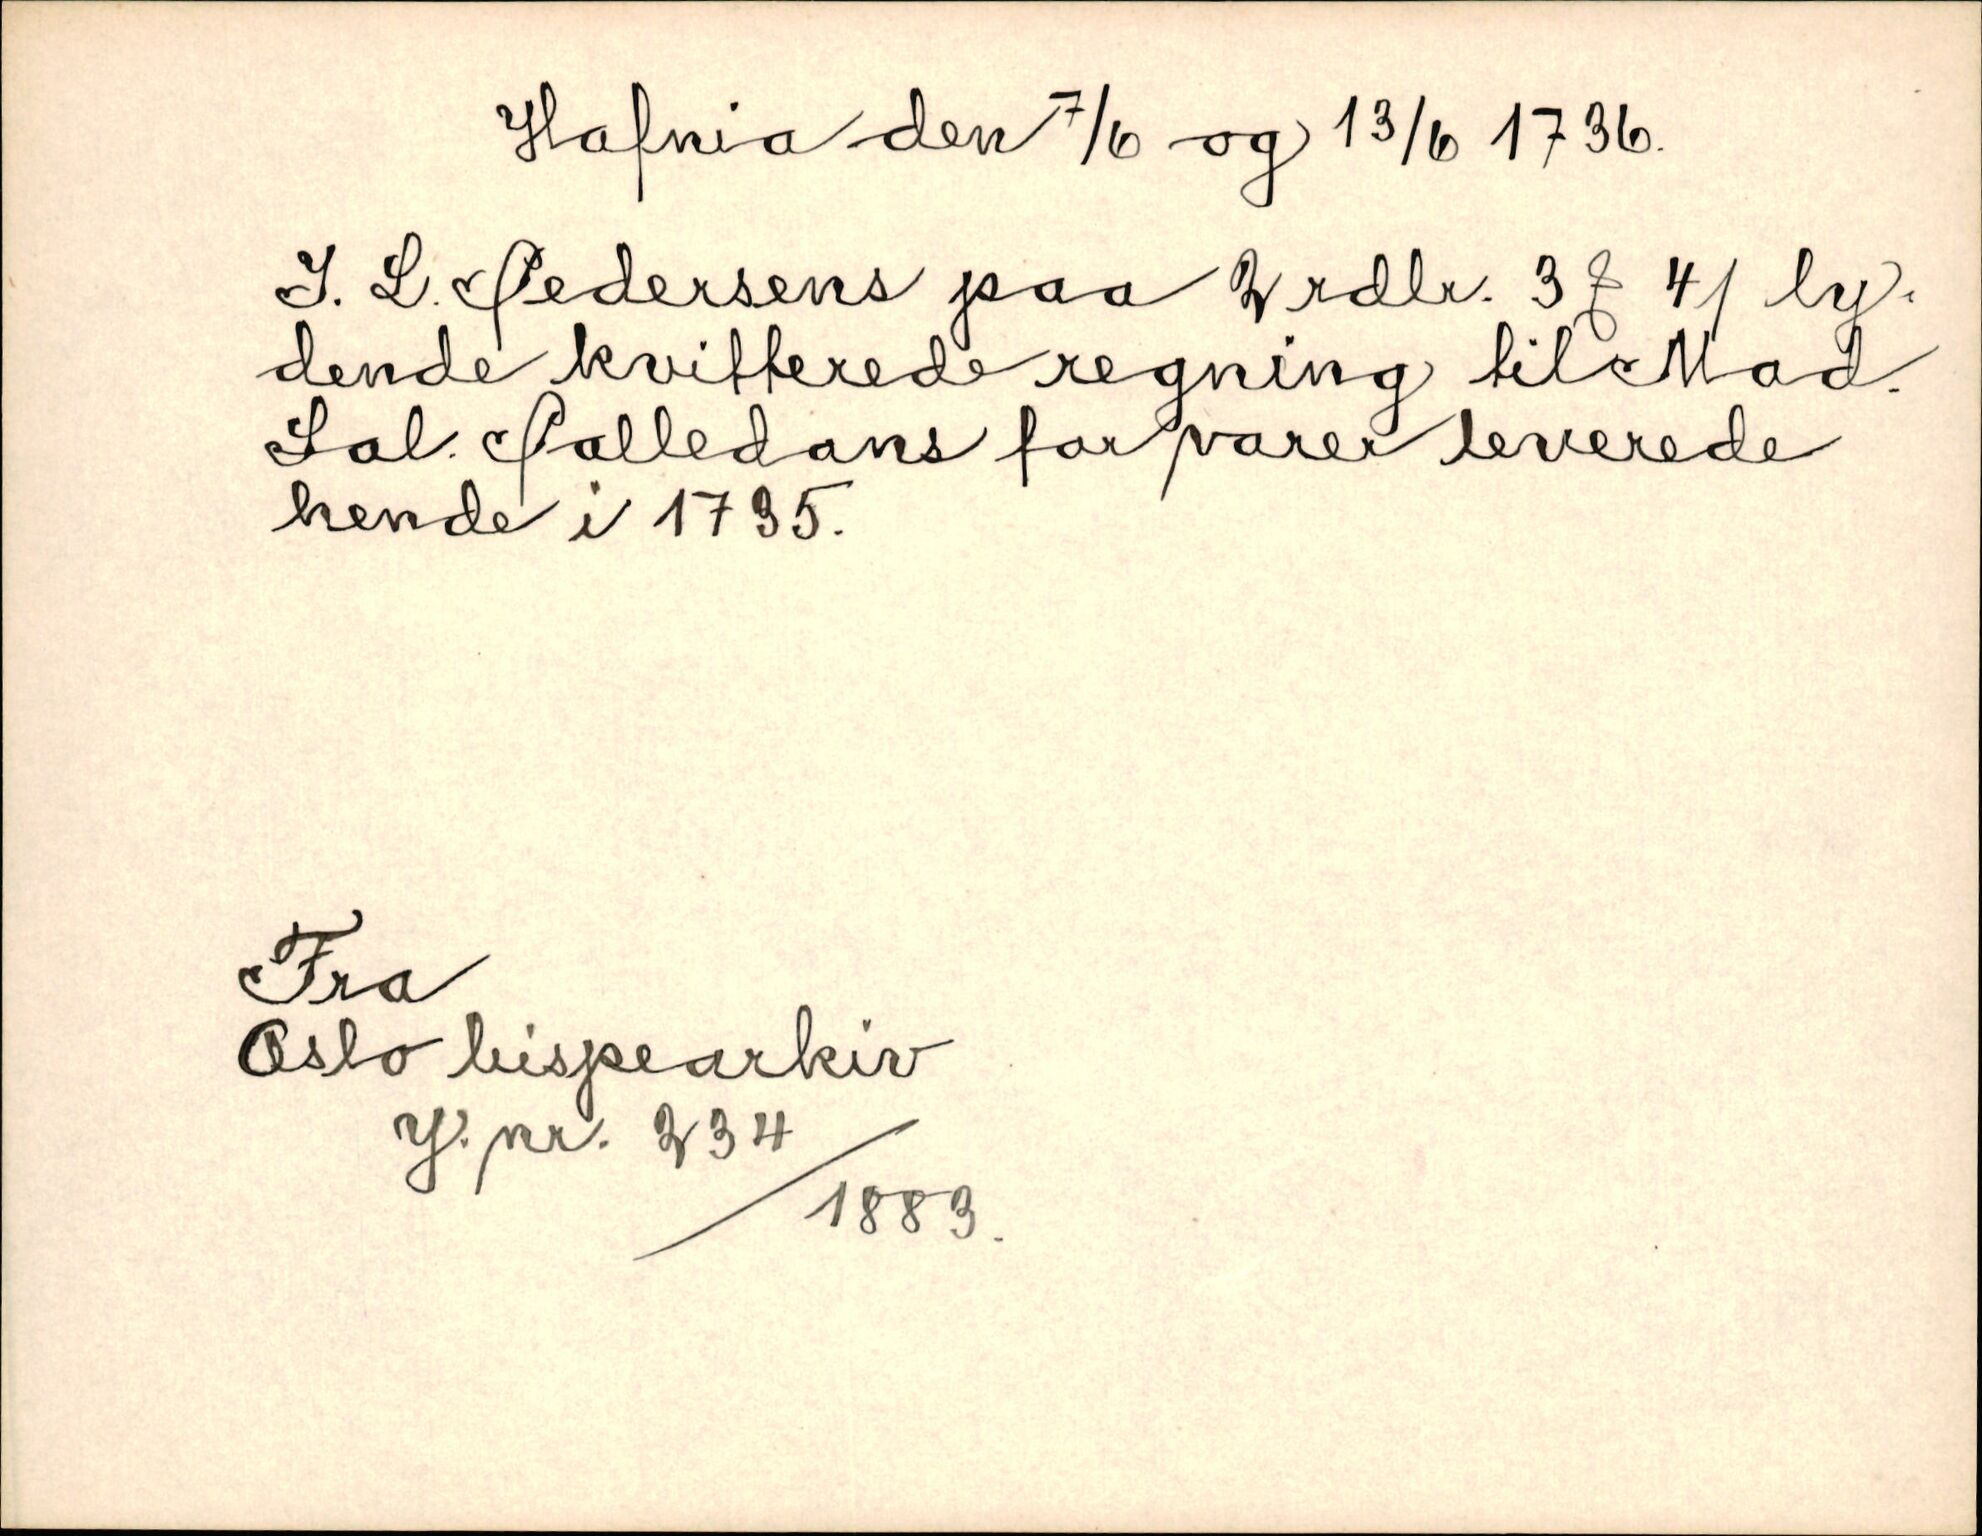 Hafnia den 7/6 og 13/6 1736.
J. L. Pedersens paa 2 rdlr. 3 ꝑ 4/ ly-
dende kvitterede regning til Mad.
Sal. Palledans for varer leverede
hende i 1735.
Fra
Oslo bispearkiv
J. nr. 234
/1883.